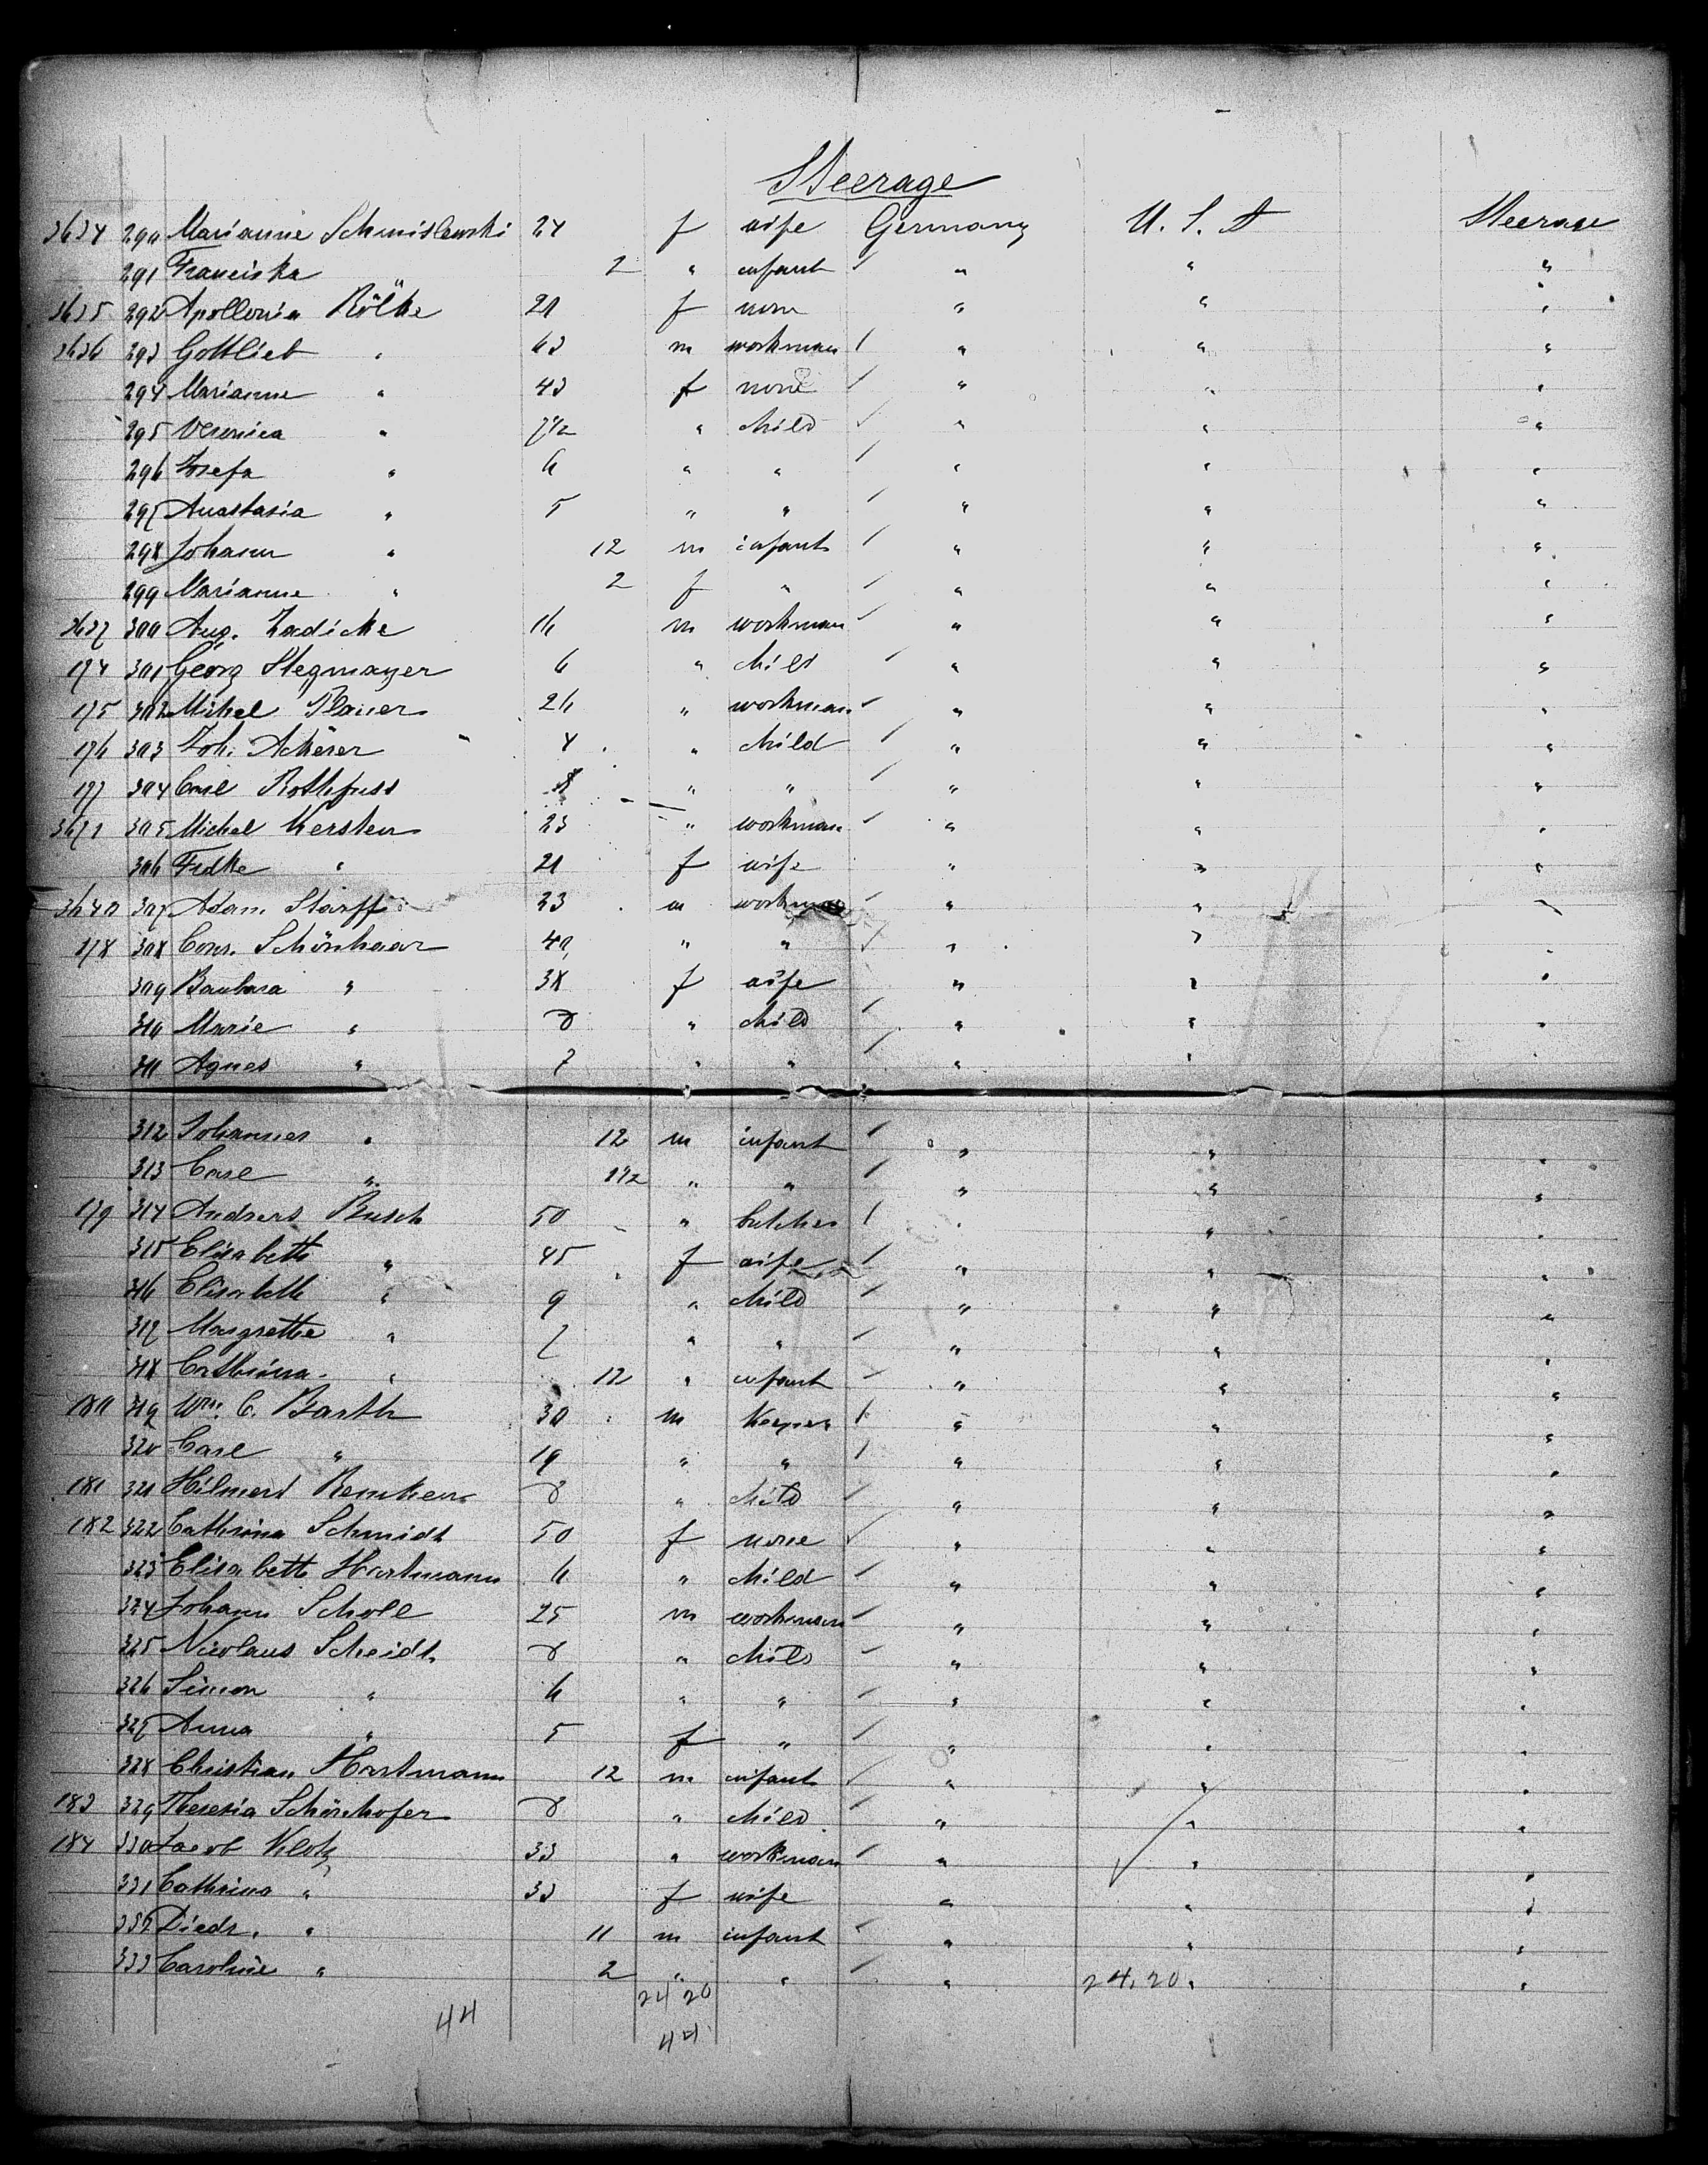 Steerage
3634 290 Marianne Schmislewski 24 f wife Germany U. S. A Steerage
291 Franciska " 2 " infant " " "
3635 292 Apollonia Rölke 21 f none " " "
3636 293 Gottlieb " 43 m workman " " "
294 Marianne " 43 f none " " "
295 Veronica " 7 1/2 " child " " "
296 Josefa " 6 " " " " "
297 Anastasia " 5 " " " " "
298 Johann " 12 m infant " " "
299 Marianne " 2 f " " " "
3637 300 Aug. Zadicke 16 m workman " " "
174 301 Georg Stegmayer 6 " child " " "
175 302 Michel Plauer 26 " workman " " "
176 303 Joh. Scherer 4 " child " " "
177 304 Carl Rothfuss 8 " " " " "
305 Michel Kersten 23 " workman " " "
306 Fredke " 21 f wife " " "
3640 307 Adam Starff 23 m workman " " "
178 308 Conr. Schönhaar 40 " " " " "
309 Barbara " 38 f wife " " "
310 Marie " 8 " child " " "
311 Agnes " 7 " " " " "
312 Johannes " 12 m infant " " "
313 Carl " 1 1/2 " " " " "
179 314 Andreas Busch 50 " butcher " " "
315 Elisabeth " 45 f wife " " "
316 Elisabeth " 9 " child " " "
317 Margrethe " 7 " " " " "
318 Cathrina " 12 " infant " " "
180 319 Wm. C. Barth 30 m " " "
320 Carl " 19 " " " " "
181 321 Hilmerd Remkers 8 " child " " "
182 322 Cathrina Schmidt 50 f none " " "
323 Elisabeth Hartmann 6 " child " " "
324 Johann Scholl 25 m workman " " "
325 Nicolaus Scheidt 8 " child " " "
326 Simon " 6 " " " " "
327 Anna " 5 f " " " "
328 Christian Hartmann 12 m infant " " "
183 329 Theresia Schönhofer 8 " child " " "
184 330 Jacob Klotz 33 " workman " " "
331 Cathrina " 33 f wife " " "
332 Diedr. " 11 m infant " " "
333 Caroline " 2 " " " 24.20 " "
24 20
44
44